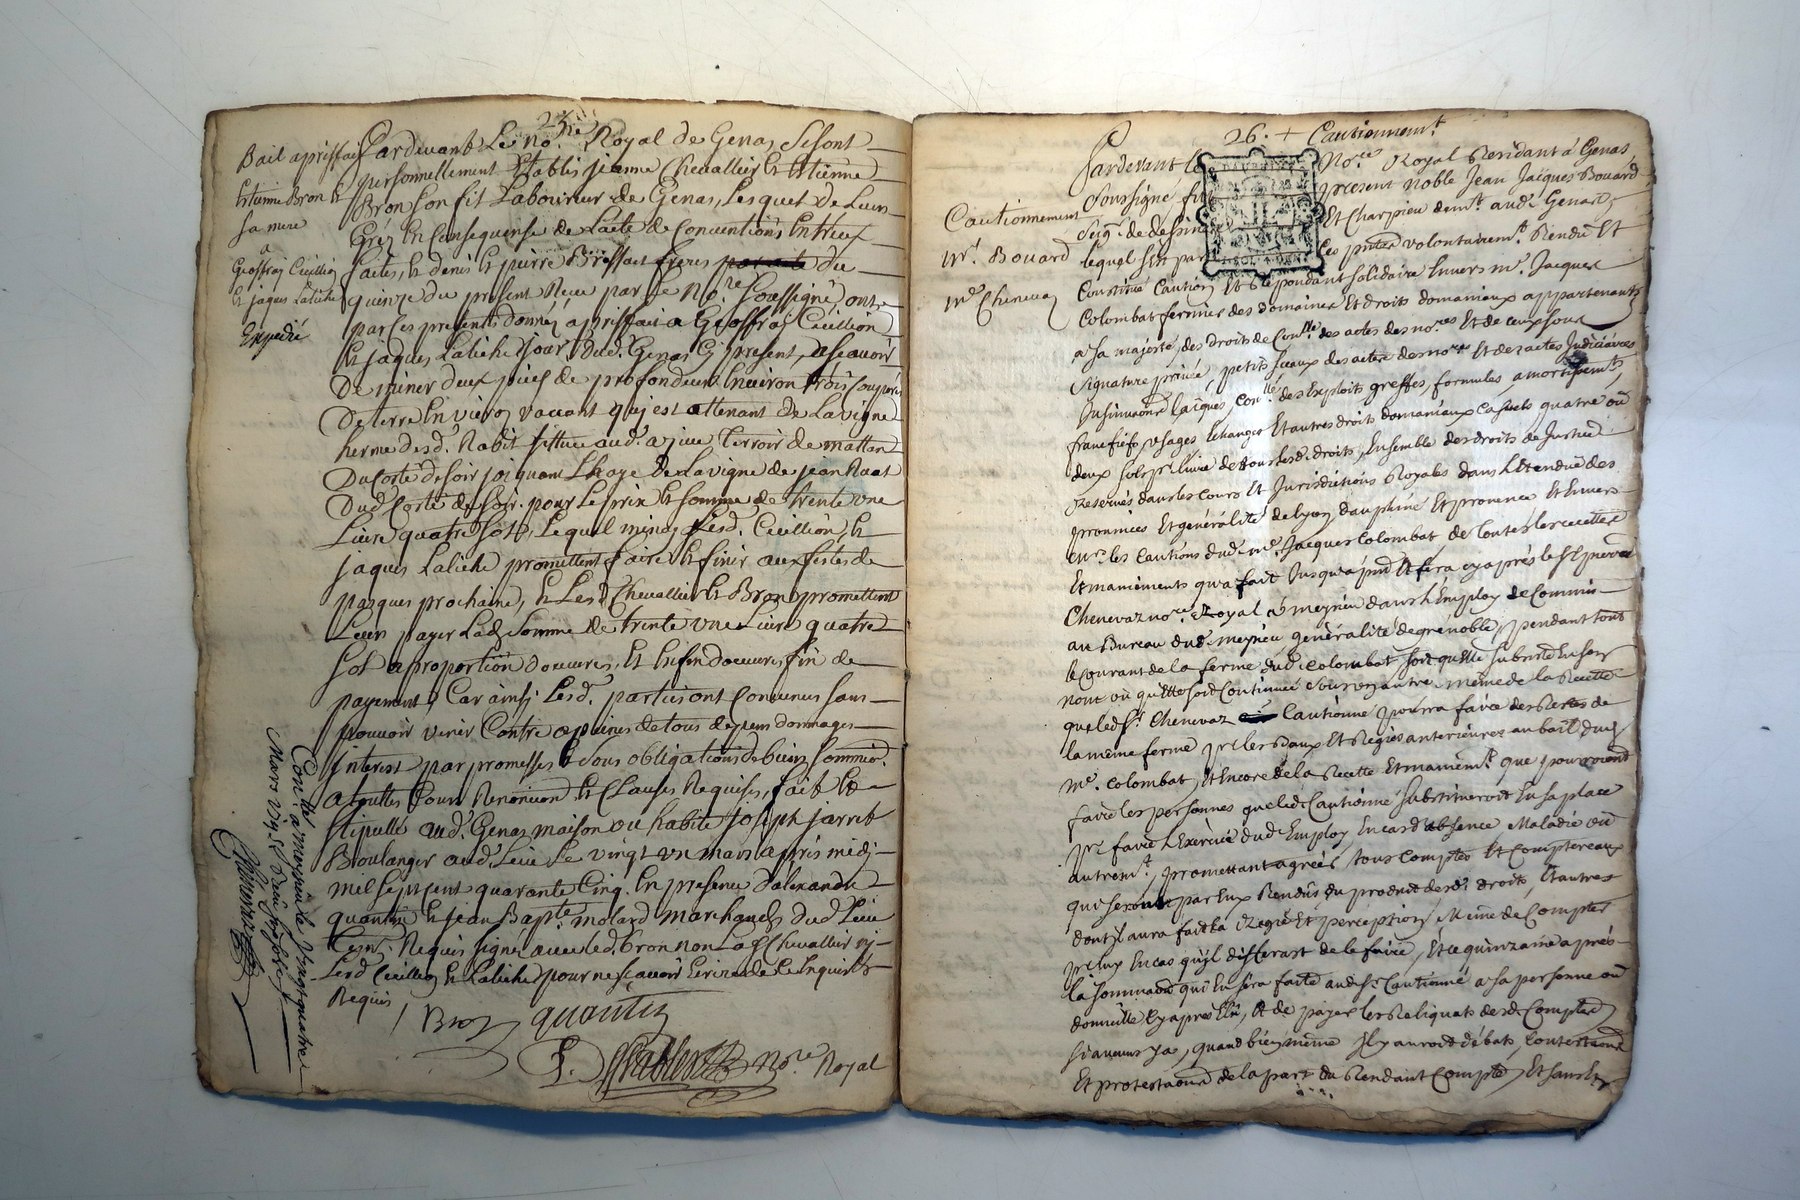 25
Bail a prisfait
Etienne Bron &
sa mere
a
Geoffray Cuillion
& jaques Laliche
Expedié
Pardevant Le no.re Royal de Genas, Se sont
personnellement Etablis jeanne Chevallier & Etienne
Bron son fils Laboureur de Genas, Lesquels de Leurs
Gréz En Consequense de Lacte de Conventions Entreux
faites, & denis & pierre freres du
quinze du présent Reçu par Le No.re soussigné, ont
par ces presents donnéz a prisfait a Geoffray Cuillion
& jaques Laliche dud. Genas Cy present, ascavoir
De miner deux pieds de profondeur Environ trois
De terre En vacant qui est attenant de La vigne
herme desd. terroir de mattan
Du Coté de soir La haye de La vigne de jean
Dud. Coté de soir, pour Le prix & somme de trente une
Livre quatre sols, Lequel Lesd. Cuillion &
jaques Laliche promettent faire & finir aux festes de
pasques prochaine, & Lesd. Chevallier & Bron promettent
Leur payer Lad. Somme de trente une Livre quatre
sols a proportion douvres, Et En fin douvres fin de
payement, Car ainsi Lesd. parties ont Convenus sans
pouvoir venir Contre a peines de tous depens dommages
interest par promesses & sous obligations de biens
a touttes Cours Renoncions & Clauses Requises, fait &
stipullé aud. Genas maison ou habite joseph jarret
Boulanger aud. Lieu Le vingt un mars après midi
mil sept cent quarante Cinq. En presence d'alexandre
quantin & jean Bapte. molard marchands dud. Lieu
Requis signé avec led. Bron non Lad. Chevallier ni
Lesd. Cuillion & Laliche pour ne scavoir Ecrire de Ce Enquis &
Requis /
Bron quantin
No.re Royal
Conllé. a meyzieu le vingt quatre
Mars 1745
Chenevaz
26. + Cautionnem.t
Cautionnement
Mr. Bouard
Me Chenevaz
Pardevant le No.re Royal Residant à Genas
Soussigné fut present noble Jean Jacques Bouard
Seigr. de Et Charpieu demt. aud. Genas,
lequel S'en volontairemt. Rendu Et
Constitué Caution Et Repondant solidaire Envers me. Jacques
Colombat fermier des domaines Et droits domaniaux appartenants
a Sa majesté, des droits de Conlle des actes des no.res Et de ceux sous
signature privée, petits sceaux des actes des no.res Et des actes Judiciaires
Insinuaons laiques, conlle des Exploits greffes, formules amortissemts,
franc fiefs, usages Echanges Et autres droits domaniaux casuels quatre ou
deux sols pr. livre de tous lesd. droits, Ensemble des droits de Justice
Reservés dans les Cours Et Jurisdictions Royales dans l'Etendue des
provinces Et généralité de lyon dauphiné Et provence Et Envers
les Cautions dud. me. Jacques Colombat, de toutes les recettes
Et maniements qu'a fait Jusqu'a pnt Et fera cy après le Sr
Chenevaz no.re Royal a meyzieu dans l'Employ de Commis
au Bureau dud. meyzieu généralité de grenoble, pendant tout
le courant de la ferme dud. Colombat, soit qu'Elle subsiste En son
nom ou qu'Elle soit Continuée sous un autre même de la Recette
que led. Sr. Chenevaz Cautionné pourra faire des Restes de
la même ferme pr. les Baux Et Regies anterieures au bail dud.
me. Colombat, Et Encore de la Recette Et maniemt. que pourroient
faire les personnes que led. Cautionné substitueroit En sa place
pr. faire l'Exercice dud. Employ En cas d'absence Maladie ou
autremt., promettant agréer tous Comptes Et Comptereaux
qui seront par Eux Rendus du produit desd. droits, Et autres
dont Il aura fait la Regie Et perception, Même de Compter
pr. Eux En cas qu'il differast de le faire, Et ce quinzaine après
la sommaon qui En sera faite aud. Sr. Cautionné a sa personne ou
domicille cy après Elû, Et de payer les Reliquats desd. Comptes
Si aucuns ya, quand bien même Il y auroit débats, Contestaons
Et protestaons de la part du Rendant Compte, Et sans